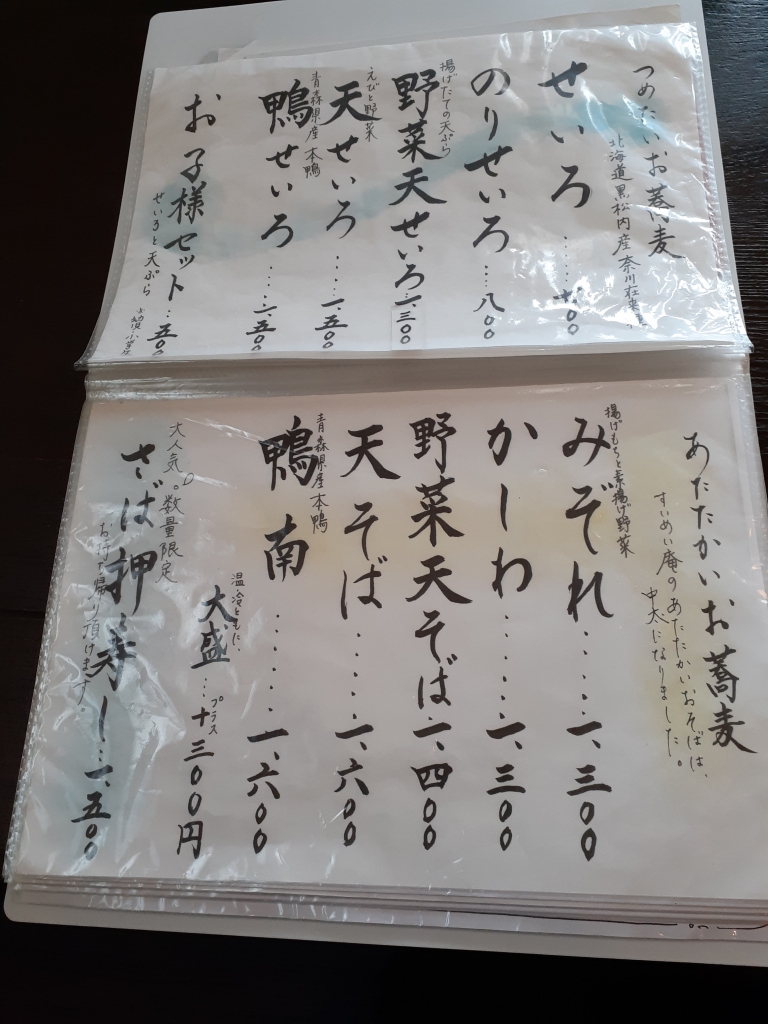 つめたいお蕎麦
北海道黒松内産奈川在来種
せいろ……七〇〇
のりせいろ…八〇〇
揚げたての天ぷら
野菜天せいろ一、三〇〇
えびと野菜
天せいろ…一、五〇〇
青森県産 本鴨
鴨せいろ…一、五〇〇
お子様セット…五〇〇
せいろと天ぷら
あたたかいお蕎麦
すいめい庵のあたたかいおそばは、
中太になりました。
揚げもちと素揚げ野菜
みぞれ……一、三〇〇
かしわ……一、三〇〇
野菜天そば一、四〇〇
天そば……一、六〇〇
青森県産本鴨
鴨南……一、六〇〇
温・冷ともに、
大盛…プラス十三〇〇円
大人気。数量限定
さば押し寿し…一、五〇〇
お持ち帰り頂けます。